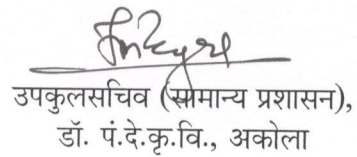 उपकुलसचिव (सामान्य प्रशासन),
डॉ. पं.दे.कृ.वि., अकोला